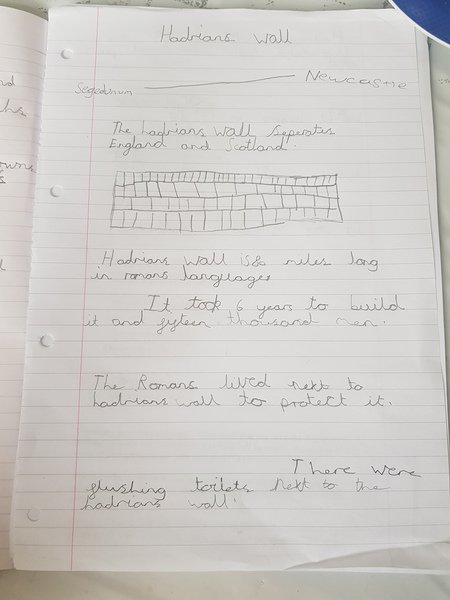 Hadrians wall
Segedunum Newcastle
The hadrians wall seperates
England and Scotland.
Hadrians wall is 80 miles long
in romans languages
It took 6 years to build
it and fifteen thousand men.
The Romans lived next to
hadrians wall to protect it.
There were
flushing toilets next to the
hadrians wall.